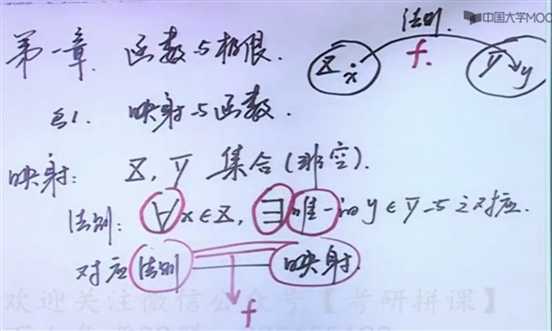 第一章. 函数与极限.
法则. 中国大学MOO
X x f. Y y
§1. 映射与函数.
映射: X, Y 集合(非空).
法则: ∀x∈X, ∃唯一的y∈Y与之对应.
对应法则 映射.
f
欢迎关注微信公众号【考研拼课】